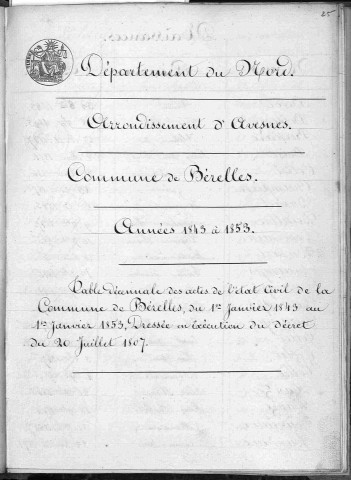 25
Département du Nord.
Arrondissement d'Avesnes.
Commune de Bérelles.
Années 1843 à 1853.
Table décennale des actes de l'état Civil de la
Commune de Bérelles, du 1er Janvier 1843 au
1er Janvier 1853, Dressée en Exécution du décret
du 20 Juillet 1807.